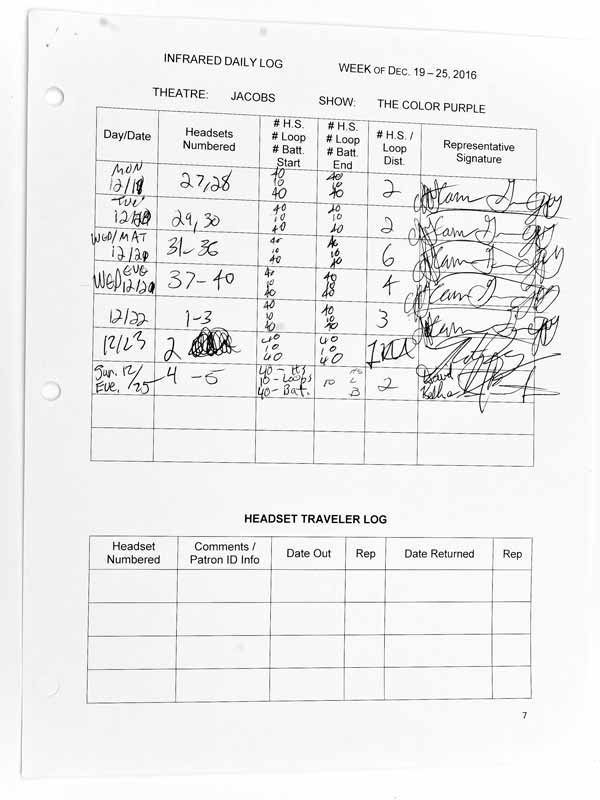 INFRARED DAILY LOG WEEK OF DEC. 19 – 25, 2016
THEATRE: JACOBS SHOW: THE COLOR PURPLE
Day/Date Headsets Numbered # H.S. # Loop # Batt. Start # H.S. # Loop # Batt. End # H.S. / Loop Dist. Representative Signature
MON 12/19 27,28 40 10 40 40 10 40 2
TUE 29, 30 40 10 40 40 10 40 2
WED/MAT 31-36 40 10 40 40 10 40 6
WED EVE 37-40 40 10 40 40 10 40 4
12/22 1-3 40 10 40 40 10 40 3
12/23 2 40 10 40 40 10 40
Sun. 12/25 Eve. 4 -5 40 - Hs 10 - Loops 40 - Bat. 10 HS L B 2 David
HEADSET TRAVELER LOG
Headset Numbered Comments / Patron ID Info Date Out Rep Date Returned Rep
7